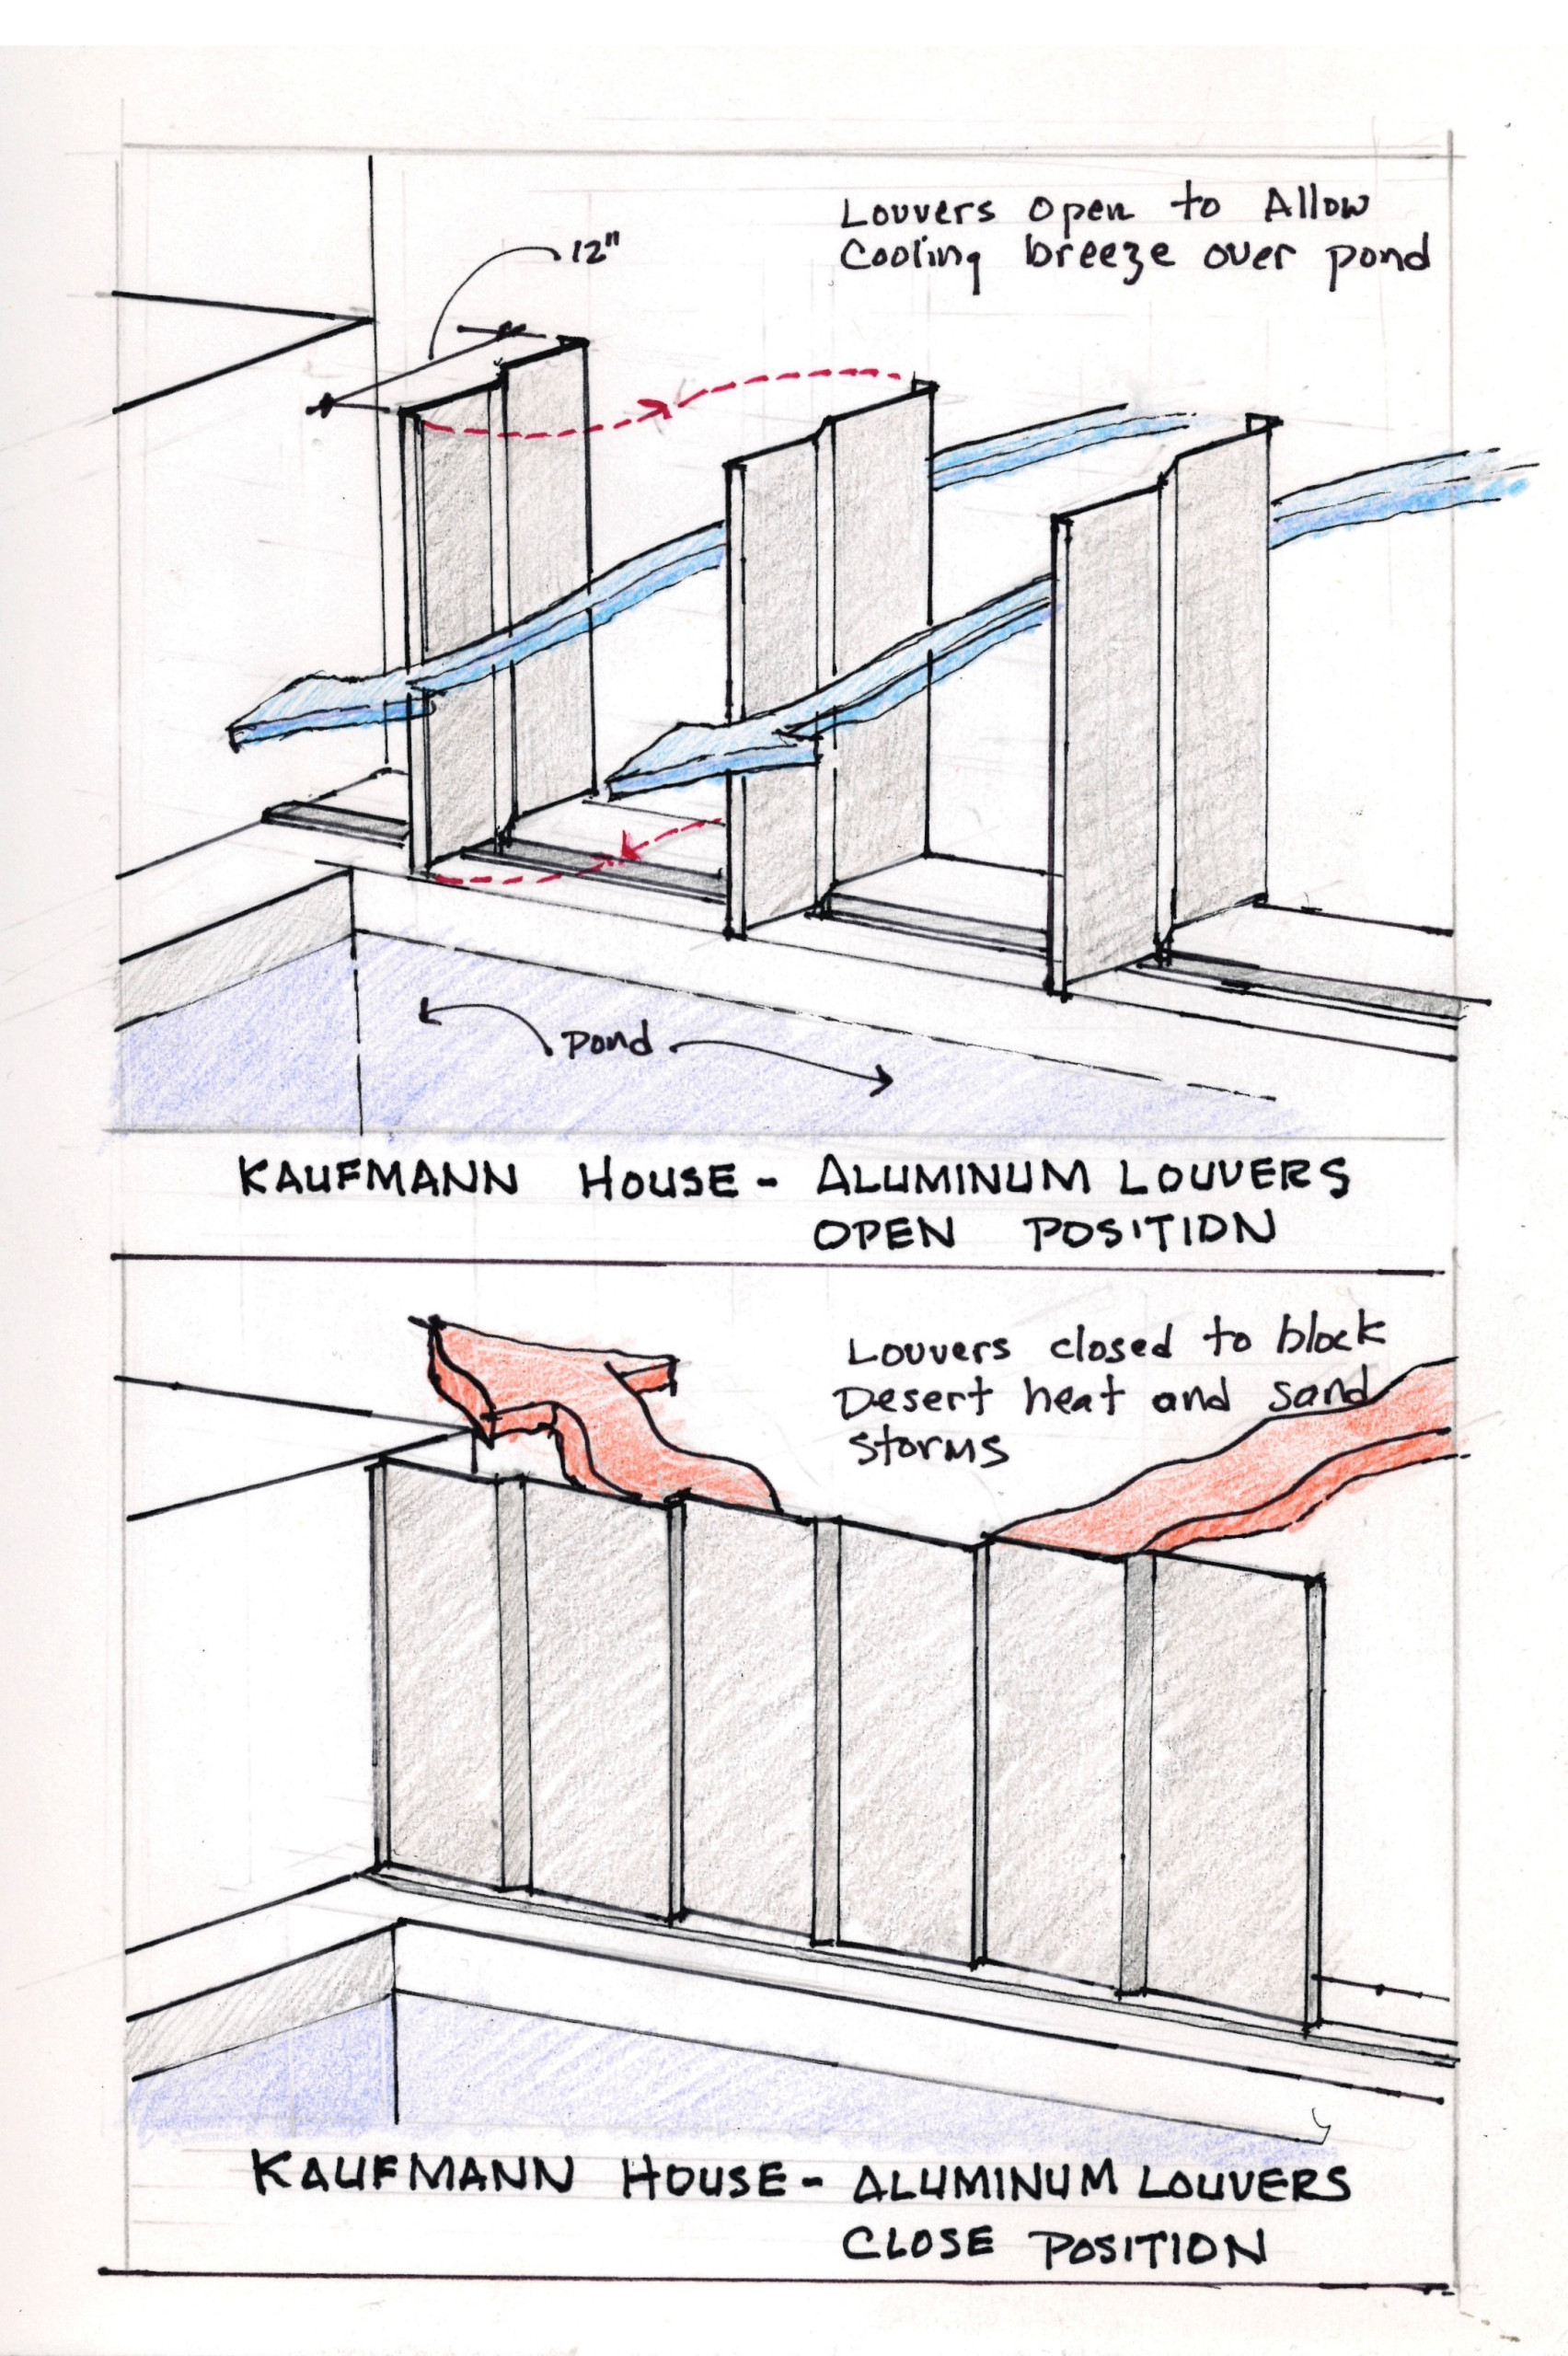 Louvers open to Allow
Cooling breeze over pond
12"
pond
KAUFMANN HOUSE - ALUMINUM LOUVERS
OPEN POSITION
Louvers closed to block
Desert heat and sand
storms
KAUFMANN HOUSE - ALUMINUM LOUVERS
CLOSE POSITION